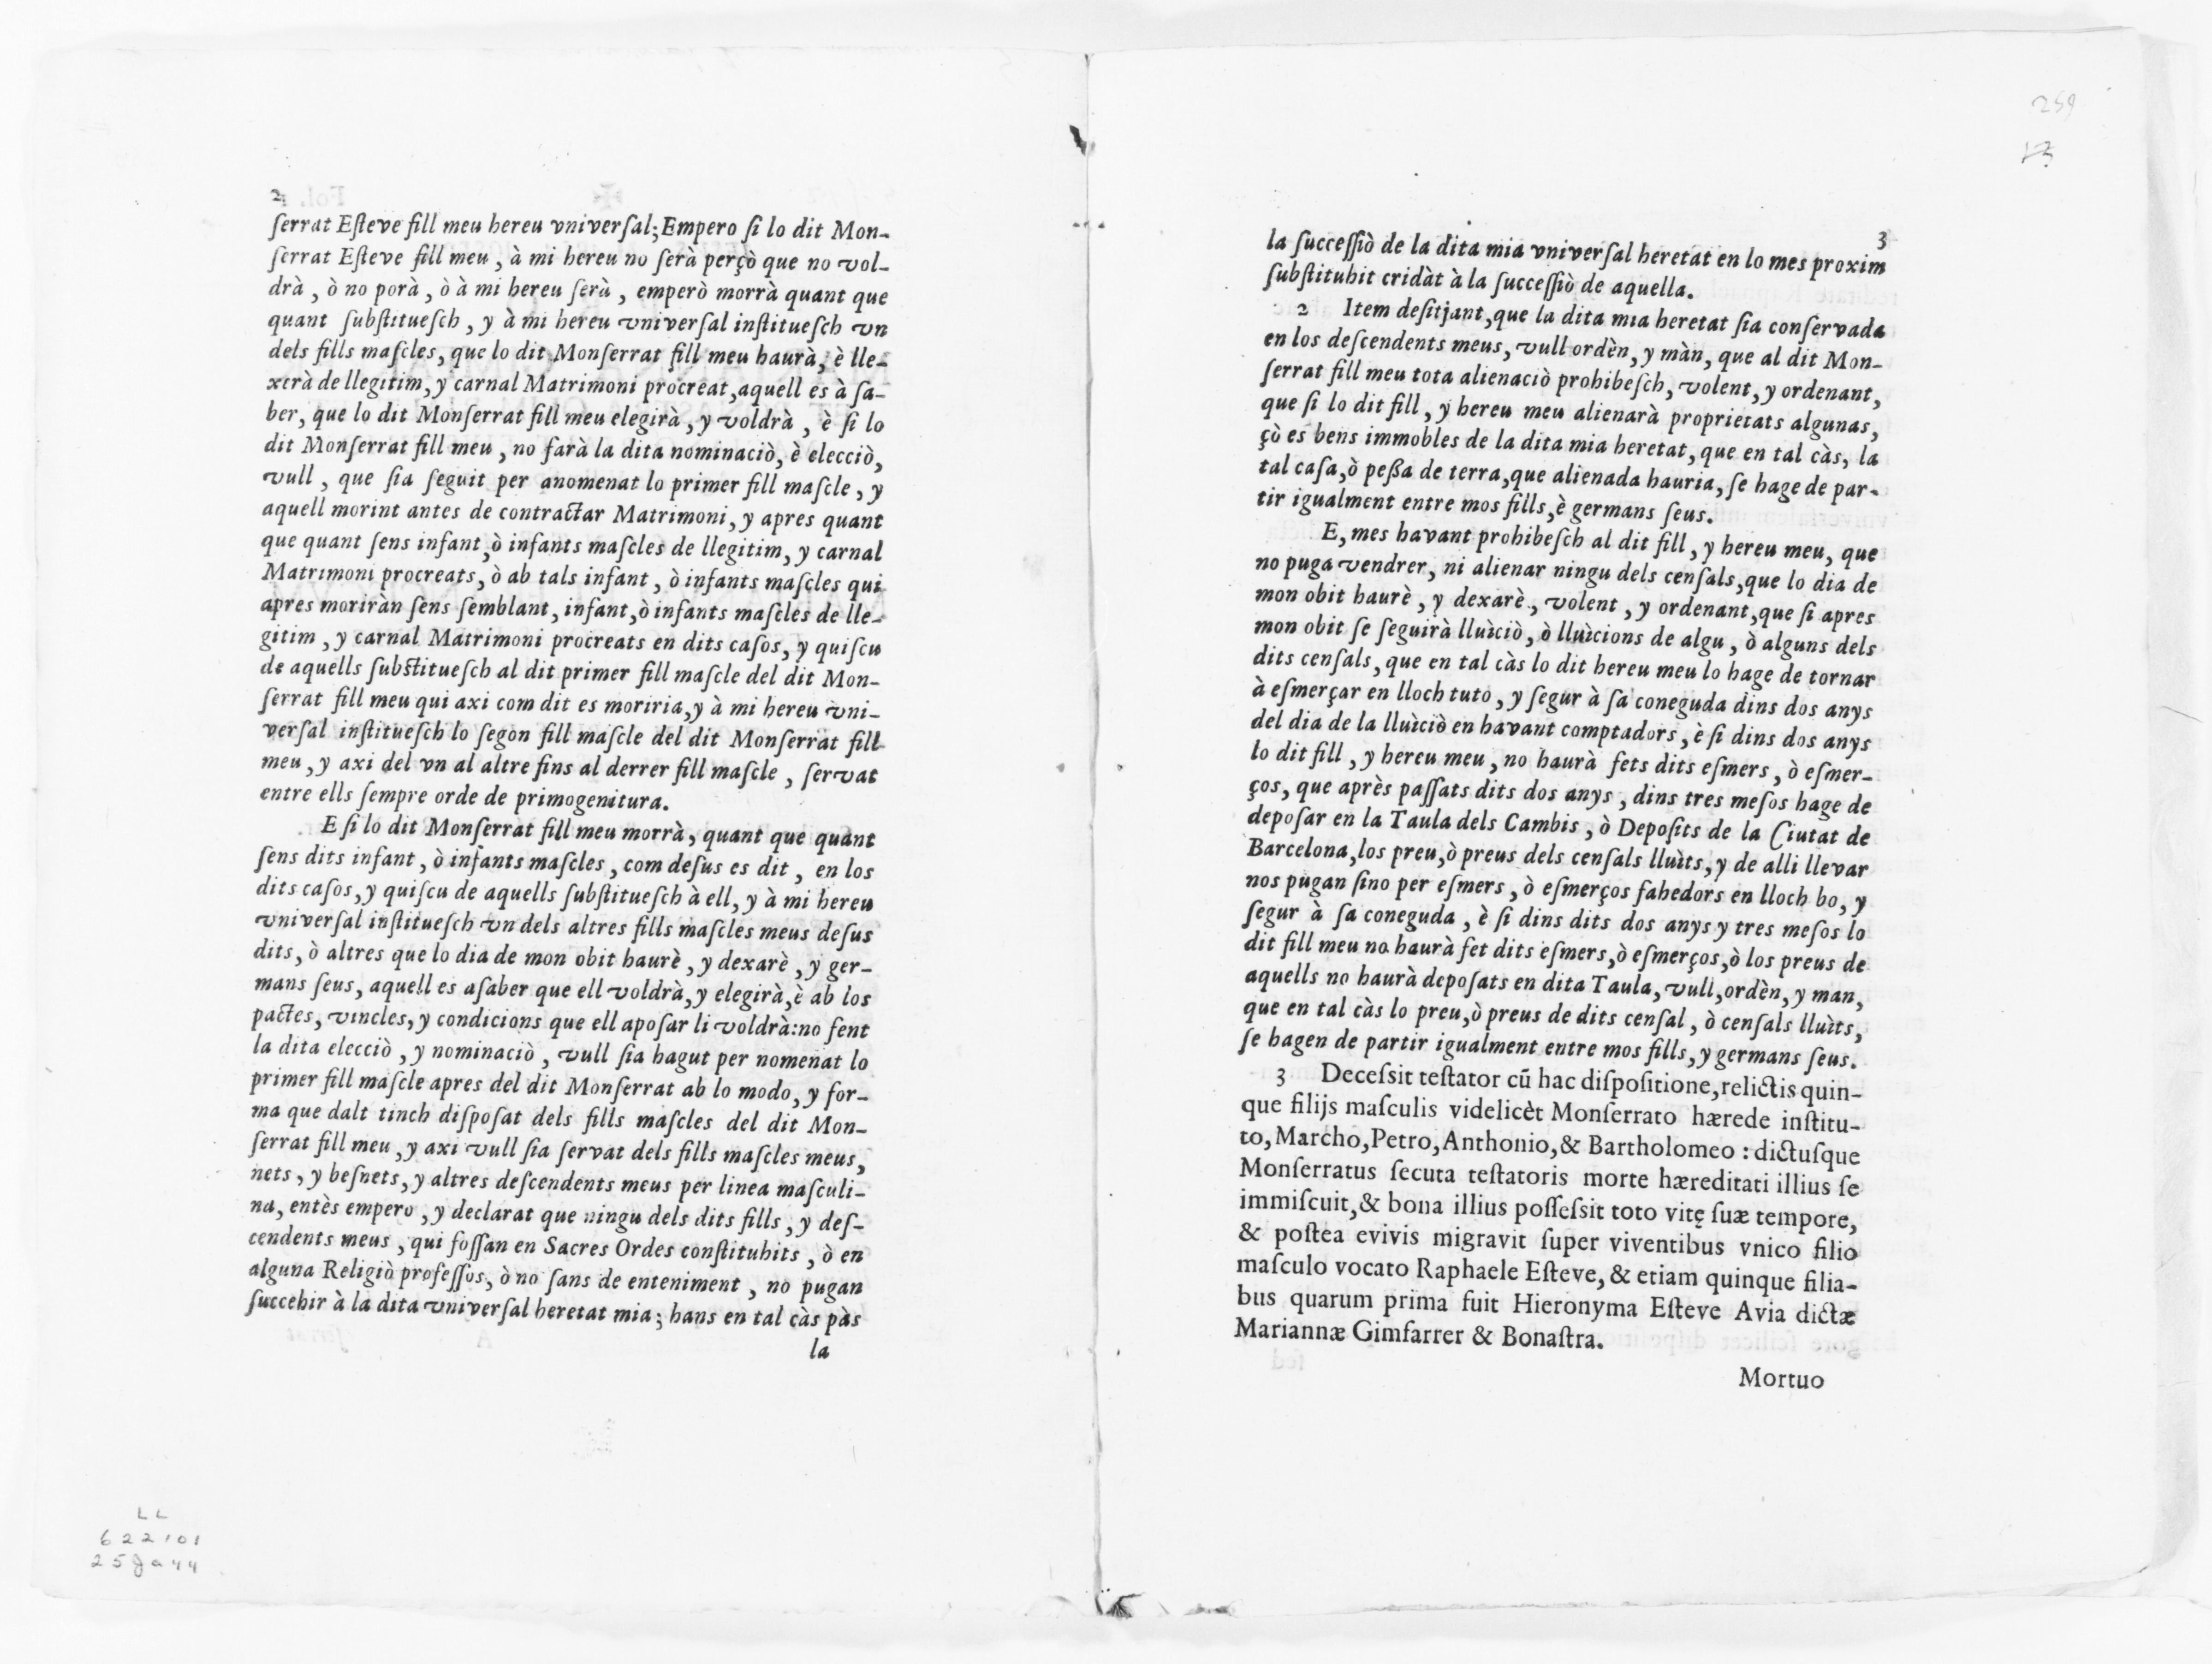 2
ſerrat Eſteve fill meu hereu vniverſal; Empero ſi lo dit Mon-
ſerrat Eſteve fill meu, à mi hereu no ſerà perçò que no vol-
drà, ò no porà, ò à mi hereu ſerà, emperò morrà quant que
quant ſubſtitueſch, y à mi hereu vniverſal inſtitueſch vn
dels fills maſcles, que lo dit Monſerrat fill meu haurà, è lle-
xerà de llegitim, y carnal Matrimoni procreat, aquell es à ſa-
ber, que lo dit Monſerrat fill meu elegirà, y voldrà, è ſi lo
dit Monſerrat fill meu, no farà la dita nominaciò, è elecciò,
vull, que ſia ſeguit per anomenat lo primer fill maſcle, y
aquell morint antes de contractar Matrimoni, y apres quant
que quant ſens infant, ò infants maſcles de llegitim, y carnal
Matrimoni procreats, ò ab tals infant, ò infants maſcles qui
apres moriràn ſens ſemblant, infant, ò infants maſcles de lle-
gitim, y carnal Matrimoni procreats en dits caſos, y quiſcu
de aquells ſubſtitueſch al dit primer fill maſcle del dit Mon-
ſerrat fill meu qui axi com dit es moriria, y à mi hereu vni-
verſal inſtitueſch lo ſegon fill maſcle del dit Monſerrat fill
meu, y axi del vn al altre fins al derrer fill maſcle, ſervat
entre ells ſempre orde de primogenitura.
E ſi lo dit Monſerrat fill meu morrà, quant que quant
ſens dits infant, ò infants maſcles, com deſus es dit, en los
dits caſos, y quiſcu de aquells ſubſtitueſch à ell, y à mi hereu
vniverſal inſtitueſch vn dels altres fills maſcles meus deſus
dits, ò altres que lo dia de mon obit haurè, y dexarè, y ger-
mans ſeus, aquell es aſaber que ell voldrà, y elegirà, è ab los
pactes, vincles, y condicions que ell apoſar li voldrà: no fent
la dita elecciò, y nominaciò, vull ſia hagut per nomenat lo
primer fill maſcle apres del dit Monſerrat ab lo modo, y for-
ma que dalt tinch diſpoſat dels fills maſcles del dit Mon-
ſerrat fill meu, y axi vull ſia ſervat dels fills maſcles meus,
nets, y beſnets, y altres deſcendents meus per linea maſculi-
na, entès empero, y declarat que ningu dels dits fills, y deſ-
cendents meus, qui foſſan en Sacres Ordes conſtituhits, ò en
alguna Religiò profeſſos, ò no ſans de enteniment, no pugan
ſuccehir à la dita vniverſal heretat mia; hans en tal càs pàs
la
LL
622101
25 Ja 44
259
13
3
la ſucceſſiò de la dita mia vniverſal heretat en lo mes proxim
ſubſtituhit cridàt à la ſucceſſiò de aquella.
2 Item deſitjant, que la dita mia heretat ſia conſervada
en los deſcendents meus, vull ordèn, y màn, que al dit Mon-
ſerrat fill meu tota alienaciò prohibeſch, volent, y ordenant,
que ſi lo dit fill, y hereu meu alienarà proprietats algunas,
çò es bens immobles de la dita mia heretat, que en tal càs, la
tal caſa, ò peßa de terra, que alienada hauria, ſe hage de par-
tir igualment entre mos fills, è germans ſeus.
E, mes havant prohibeſch al dit fill, y hereu meu, que
no puga vendrer, ni alienar ningu dels cenſals, que lo dia de
mon obit haurè, y dexarè, volent, y ordenant, que ſi apres
mon obit ſe ſeguirà lluìciò, ò lluìcions de algu, ò alguns dels
dits cenſals, que en tal càs lo dit hereu meu lo hage de tornar
à eſmerçar en lloch tuto, y ſegur à ſa coneguda dins dos anys
del dia de la lluìciò en havant comptadors, è ſi dins dos anys
lo dit fill, y hereu meu, no haurà fets dits eſmers, ò eſmer-
ços, que après paſſats dits dos anys, dins tres meſos hage de
depoſar en la Taula dels Cambis, ò Depoſits de la Ciutat de
Barcelona, los preu, ò preus dels cenſals lluìts, y de alli llevar
nos pugan ſino per eſmers, ò eſmerços fahedors en lloch bo, y
ſegur à ſa coneguda, è ſi dins dits dos anys y tres meſos lo
dit fill meu no haurà fet dits eſmers, ò eſmerços, ò los preus de
aquells no haurà depoſats en dita Taula, vull, ordèn, y man,
que en tal càs lo preu, ò preus de dits cenſal, ò cenſals lluìts,
ſe hagen de partir igualment entre mos fills, y germans ſeus.
3 Deceſsit teſtator cū hac diſpoſitione, relictis quin-
que filijs maſculis videlicèt Monſerrato hærede inſtitu-
to, Marcho, Petro, Anthonio, & Bartholomeo: dictuſque
Monſerratus ſecuta teſtatoris morte hæreditati illius ſe
immiſcuit, & bona illius poſſeſsit toto vitę ſuæ tempore,
& poſtea evivis migravit ſuper viventibus vnico filio
maſculo vocato Raphaele Eſteve, & etiam quinque filia-
bus quarum prima fuit Hieronyma Eſteve Avia dictæ
Mariannæ Gimfarrer & Bonaſtra.
Mortuo